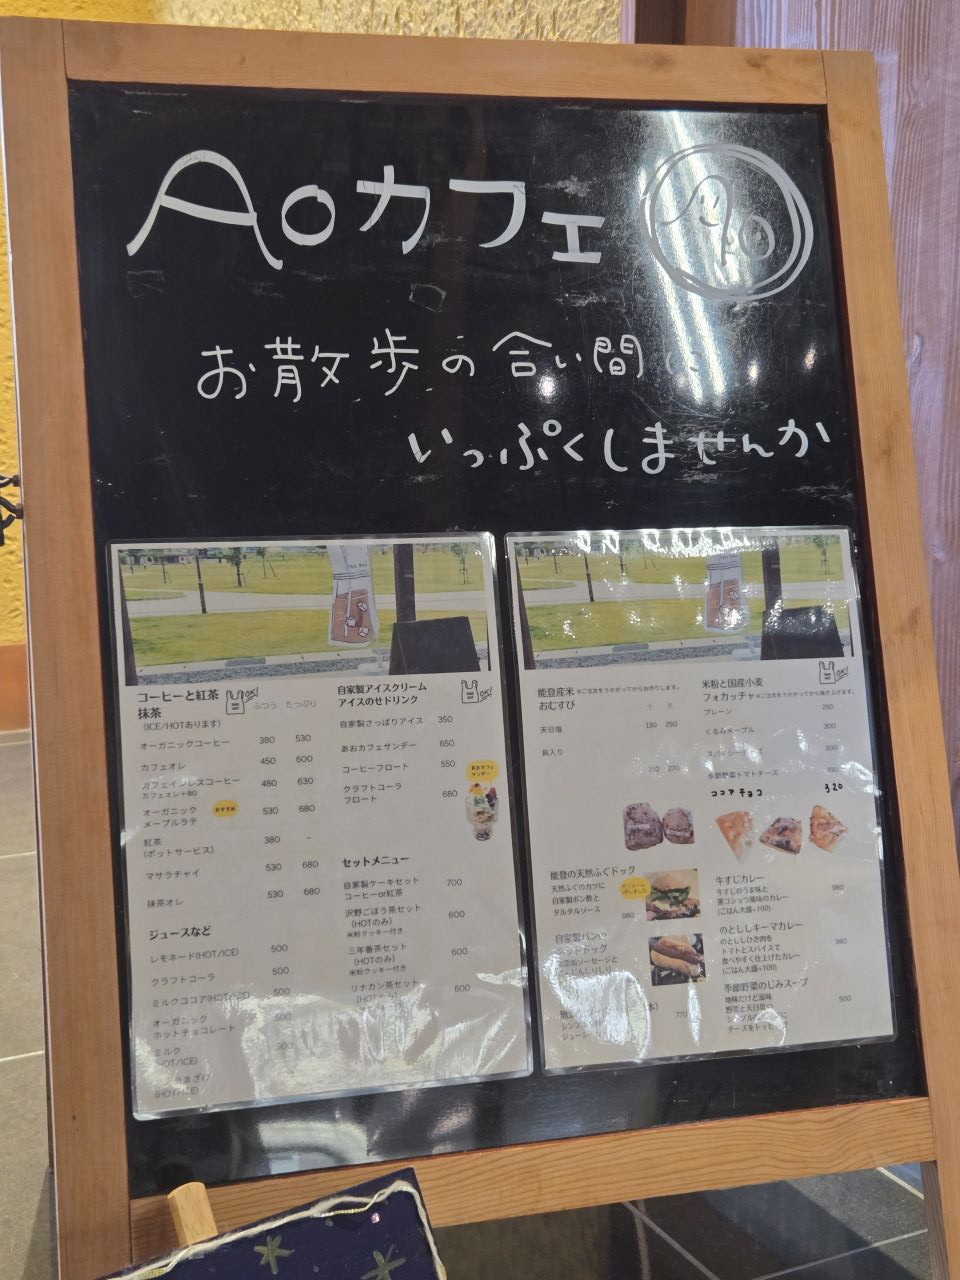 Aoカフェ
Ao
お散歩の合い間に
いっぷくしませんか
コーヒーと紅茶
抹茶
(ICE/HOTあります)
OK!
ふつう たっぷり
オーガニックコーヒー 380 530
カフェオレ 450 600
カフェインレスコーヒー 480 630
カフェオレ+80
オーガニック
メープルラテ おすすめ 530 680
紅茶
(ポットサービス) 380 -
マサラチャイ 530 680
抹茶オレ 530 680
ジュースなど
レモネード(HOT/ICE) 500
クラフトコーラ 500
ミルクココア(HOT/ICE) 500
オーガニック
ホットチョコレート 500
ミルク
(HOT/ICE)
(HOT/ICE)
自家製アイスクリーム
アイスのせドリンク
OK!
自家製さっぱりアイス 350
あおカフェサンデー 650
コーヒーフロート 550
クラフトコーラ
フロート 680
あおカフェ
サンデー
セットメニュー
自家製ケーキセット
コーヒーor紅茶 700
沢野ごぼう茶セット
(HOTのみ) 600
米粉クッキー付き
三年番茶セット
(HOTのみ) 600
米粉クッキー付き
リナカン茶セット
(HOTのみ) 600
能登産米 ※ご注文をうかがってからお作りします。
おむすび 小 大
天日塩 130 250
具入り
250 270
米粉と国産小麦
フォカッチャ ※ご注文をうかがってから焼き上げます。
OK!
プレーン 250
くるみメープル 300
300
季節野菜トマトチーズ 300
ココアチョコ 320
能登の天然ふぐドッグ
天然ふぐのカツに
自家製ポン酢と
タルタルソース
980
自家製パンの
ホットドッグ
無添加ソーセージと
770
牛すじカレー
牛すじのうま味と
黒コショウ風味のカレー
(ごはん大盛+100)
980
のとししキーマカレー
のとししひき肉を
トマトとスパイスで
食べやすく仕上げたカレー
(ごはん大盛+100)
980
季節野菜のじみスープ
地味だけど滋味
野菜と天日塩の
シンプルスープに
チーズをトッピング
500